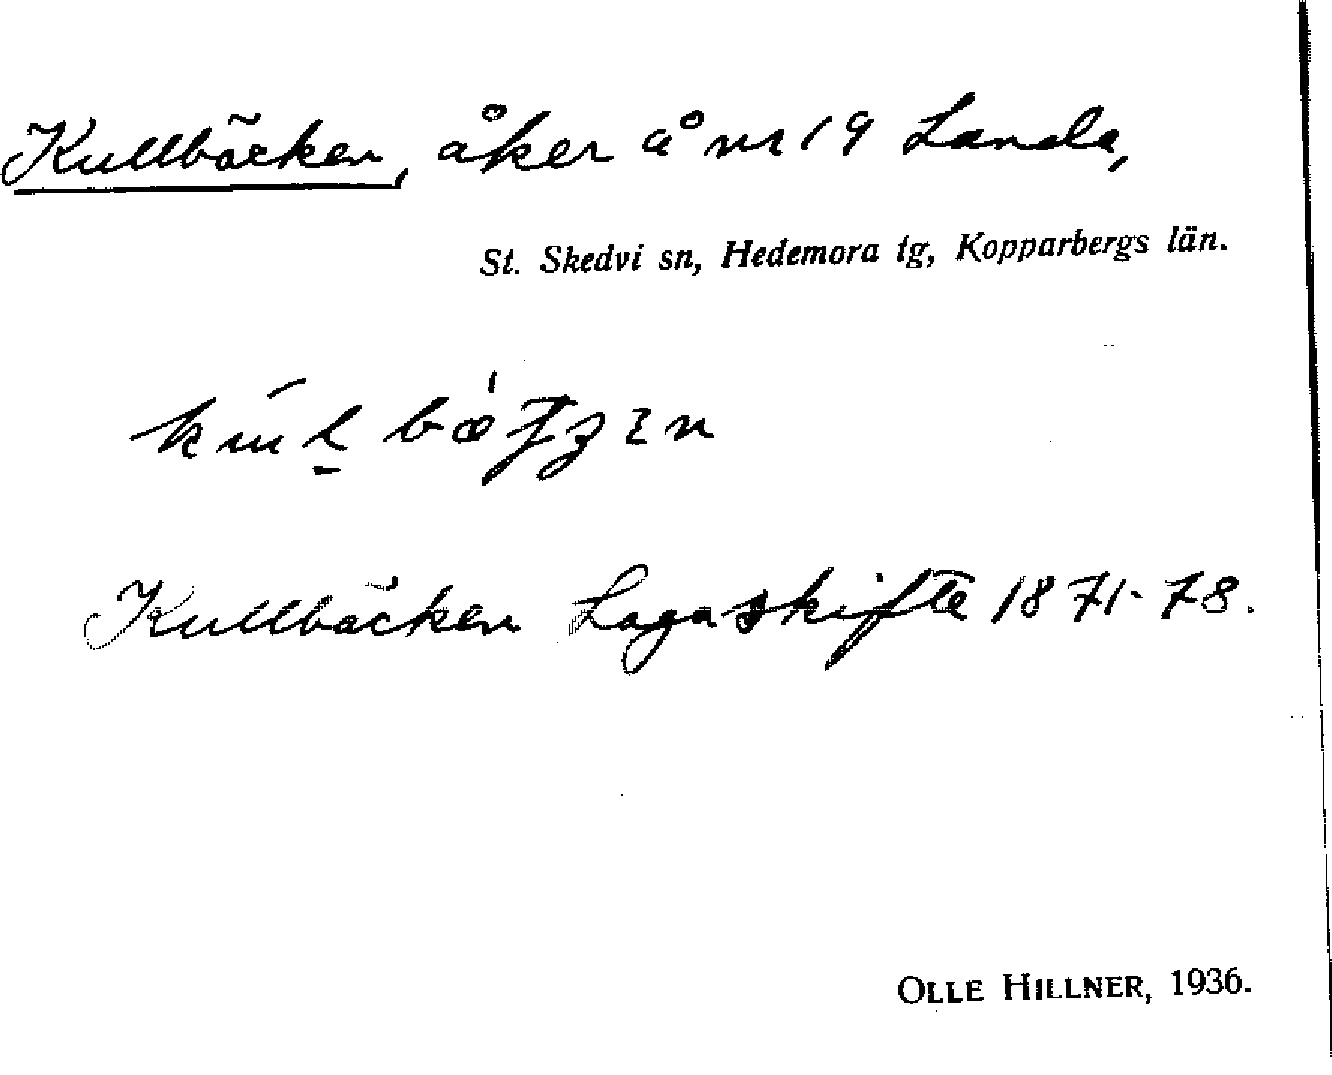 Kullbäcken, åker å nr 19 Landa,
St. Skedvi sn, Hedemora tg, Kopparbergs län.
Kullbäcken Laga skifte 1871-78.
OLLE HILLNER, 1936.